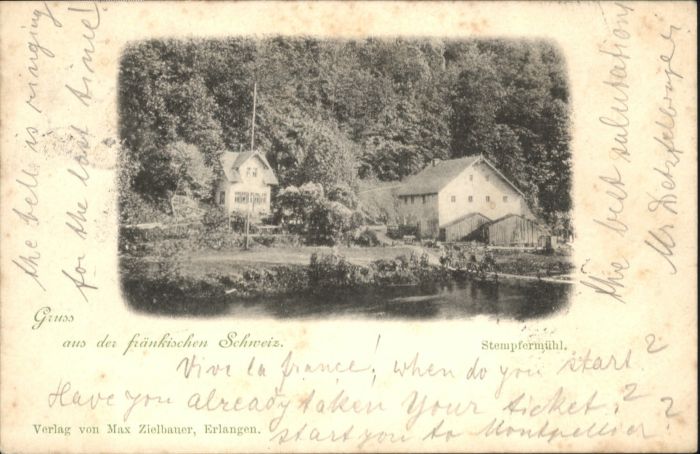 the bell is ringing
for the last time!
the best salutations
Mr Dietzfelbinger
Gruss
aus der fränkischen Schweiz.
Stempfermühl.
Vive la france! when do you start?
Have you already taken Your ticket?
Verlag von Max Zielbauer, Erlangen.
start you to Montpellier?